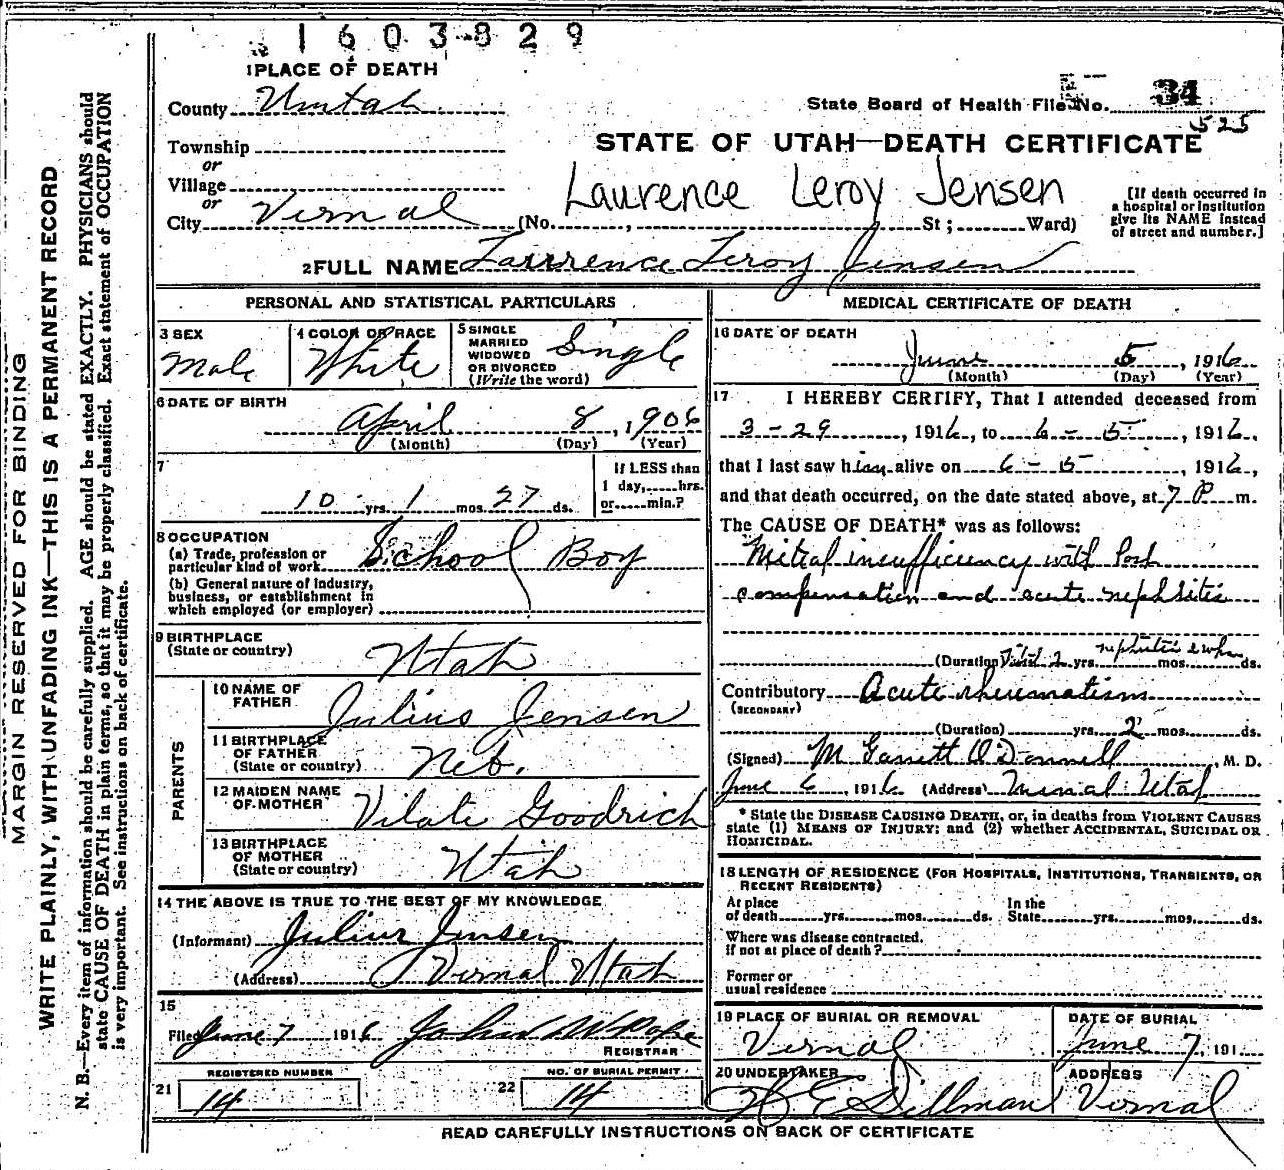 1603829
1 PLACE OF DEATH
County Uintah
State Board of Health File No. 34
525
Township
or
Village
or
City Vernal (No. , St ; Ward)
STATE OF UTAH—DEATH CERTIFICATE
Laurence Leroy Jensen
[If death occurred in
a hospital or institution
give its NAME instead
of street and number.]
2 FULL NAME Lawrence Leroy Jensen
PERSONAL AND STATISTICAL PARTICULARS
3 SEX
Male
4 COLOR OR RACE
White
5 SINGLE
MARRIED
WIDOWED
OR DIVORCED
(Write the word)
Single
6 DATE OF BIRTH
April 8, 1906
(Month) (Day) (Year)
7
10 yrs. 1 mos. 27 ds.
If LESS than
1 day, hrs.
or min.?
8 OCCUPATION
(a) Trade, profession or
particular kind of work School Boy
(b) General nature of industry,
business, or establishment in
which employed (or employer)
9 BIRTHPLACE
(State or country)
Utah
PARENTS
10 NAME OF
FATHER
Julius Jensen
11 BIRTHPLACE
OF FATHER
(State or country)
Neb.
12 MAIDEN NAME
OF MOTHER
Vilate Goodrich
13 BIRTHPLACE
OF MOTHER
(State or country)
Utah
14 THE ABOVE IS TRUE TO THE BEST OF MY KNOWLEDGE
(Informant) Julius Jensen
(Address) Vernal Utah
15
Filed June 7 1916 John W Pope
REGISTRAR
REGISTERED NUMBER
21 14
NO. OF BURIAL PERMIT
22 14
MEDICAL CERTIFICATE OF DEATH
16 DATE OF DEATH
June 5, 1916
(Month) (Day) (Year)
17 I HEREBY CERTIFY, That I attended deceased from
3-29, 1916, to 6-5, 1916,
that I last saw him alive on 6-5, 1916,
and that death occurred, on the date stated above, at 7 P. m.
The CAUSE OF DEATH* was as follows:
Mitral insufficiency with Post
compensation and acute nephritis
(Duration) 2 yrs. nephritis mos. ds.
Contributory Acute rheumatism
(SECONDARY)
(Duration) yrs. 2 mos. ds.
(Signed) M Garrett O'Donnell, M. D.
June 6, 1916 (Address) Vernal Utah
* State the DISEASE CAUSING DEATH, or, in deaths from VIOLENT CAUSES
state (1) MEANS OF INJURY; and (2) whether ACCIDENTAL, SUICIDAL OR
HOMICIDAL.
18 LENGTH OF RESIDENCE (FOR HOSPITALS, INSTITUTIONS, TRANSIENTS, OR
RECENT RESIDENTS)
At place
of death yrs. mos. ds.
In the
State yrs. mos. ds.
Where was disease contracted.
if not at place of death?
Former or
usual residence
19 PLACE OF BURIAL OR REMOVAL
Vernal
DATE OF BURIAL
June 7, 191
20 UNDERTAKER
W E Dillman
ADDRESS
Vernal
READ CAREFULLY INSTRUCTIONS ON BACK OF CERTIFICATE
MARGIN RESERVED FOR BINDING
WRITE PLAINLY, WITH UNFADING INK—THIS IS A PERMANENT RECORD
N. B.—Every item of information should be carefully supplied. AGE should be stated EXACTLY. PHYSICIANS should
state CAUSE OF DEATH in plain terms, so that it may be properly classified. Exact statement of OCCUPATION
is very important. See instructions on back of certificate.